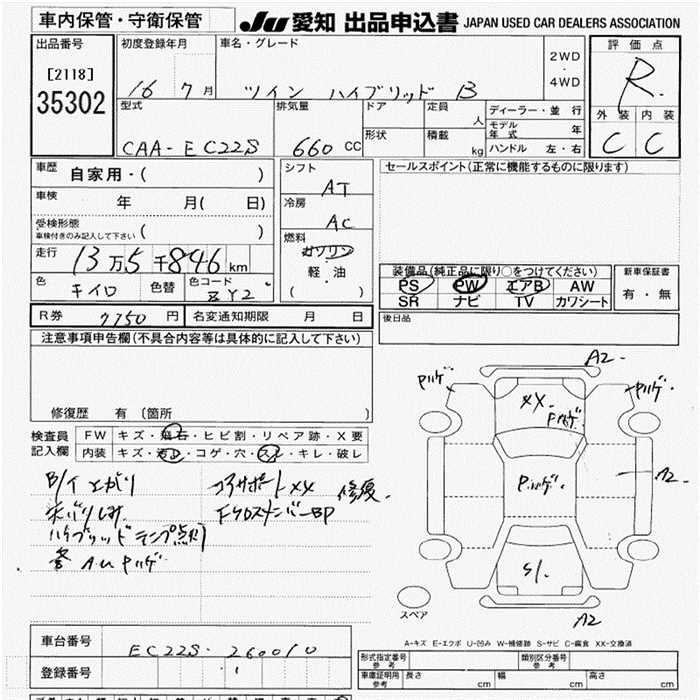 車内保管・守衛保管
JU 愛知 出品申込書 JAPAN USED CAR DEALERS ASSOCIATION
出品番号
[2118]
35302
初度登録年月
16 7月
車名・グレード
ツイン ハイブリッド B
2WD
・
4WD
評価点
R
外装 内装
C C
型式
CAA-EC22S
排気量
660 CC
ドア
形状
定員 人
積載 kg
ディーラー・並行
モデル年式 年
ハンドル 左・右
車歴
自家用・( )
車検
年 月( 日)
受検形態
車検付きのみ記入して下さい ( )
走行
13万5千846km
色
キイロ
色替
色コード
ZY2
シフト
AT
冷房
AC
燃料
ガソリン
・
軽・油
( )
セールスポイント(正常に機能するものに限ります)
装備品(純正品に限り○をつけてください)
PS PW エアB AW
SR ナビ TV カワシート
新車保証書
有・無
R券 7750 円
名変通知期限 月 日
後日品
注意事項申告欄(不具合内容等は具体的に記入して下さい)
修復歴 有〔箇所 〕
検査員記入欄
FW キズ・飛石・ヒビ割・リペア跡・X要
内装 キズ・汚れ・コゲ・穴・スレ・キレ・破レ
コアサポートXX 修復
FクロスメンバーBP
ハイブリッドランプ点灯
A2
XX
A2
S/
A2
スペア
A-キズ E-エクボ U-凹み W-補修跡 S-サビ C-腐食 XX-交換済
車台番号
EC22S-260010
登録番号
形式指定番号 参考
類別区分番号 参考
車庫証明用 参考
長さ cm
幅 cm
高さ cm